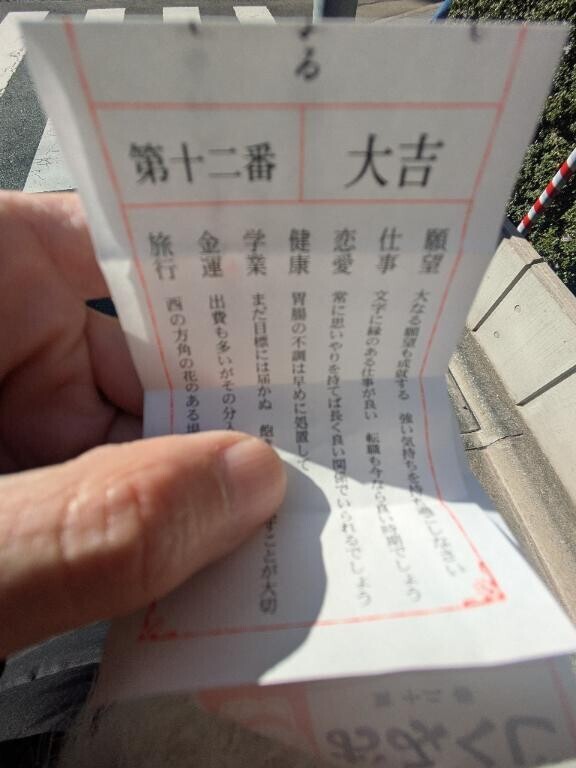 る
大吉
第十二番
願望 大なる願望も成就する 強い気持ちを持ち過ごしなさい
仕事 文字に縁のある仕事が良い 転職も今なら良い時期でしょう
恋愛 常に思いやりを持てば長く良い関係でいられるでしょう
健康 胃腸の不調は早めに処置して
学業 まだ目標には届かぬ ことが大切
金運 出費も多いがその分
旅行 西の方角の花のある